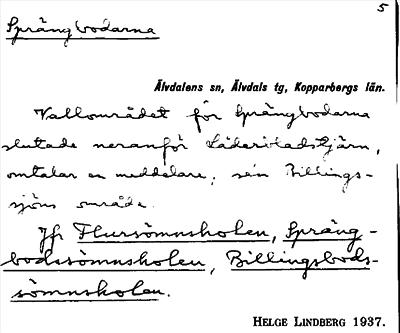 5
Sprängbodarna
Älvdalens sn, Älvdals tg, Kopparbergs län.
Vallområdet för Sprängbodarna
slutade neranför Läderbladstjärn,
omtalar en meddelare; sen Billings-
sjöns område.
Jfr Flursömnskolen, Spräng-
bodssömnskolen, Billingsbods-
sömnskolen.
HELGE LINDBERG 1937.